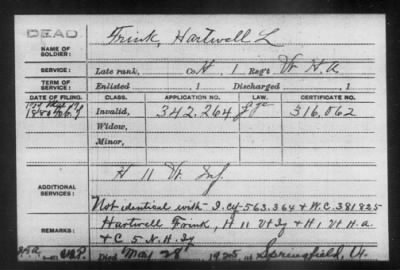 DEAD
Frink, Hartwell L
NAME OF SOLDIER:
SERVICE: Late rank, Co. H, 1 Reg't Vt H.A
TERM OF SERVICE: Enlisted 1 Discharged 1
DATE OF FILING. CLASS. APPLICATION NO. LAW. CERTIFICATE NO.
1880 Invalid, 342.264 316.062
Widow,
Minor,
H 11 Vt Inf
ADDITIONAL SERVICES:
Not identical with I. Cf 563.364 & W.C. 381825
REMARKS: Hartwell Frink, H 11 Vt Iy & H 1 Vt H.a.
& C 5 N.H. Iy
Died May 28 1925 at Springfield, Vt.